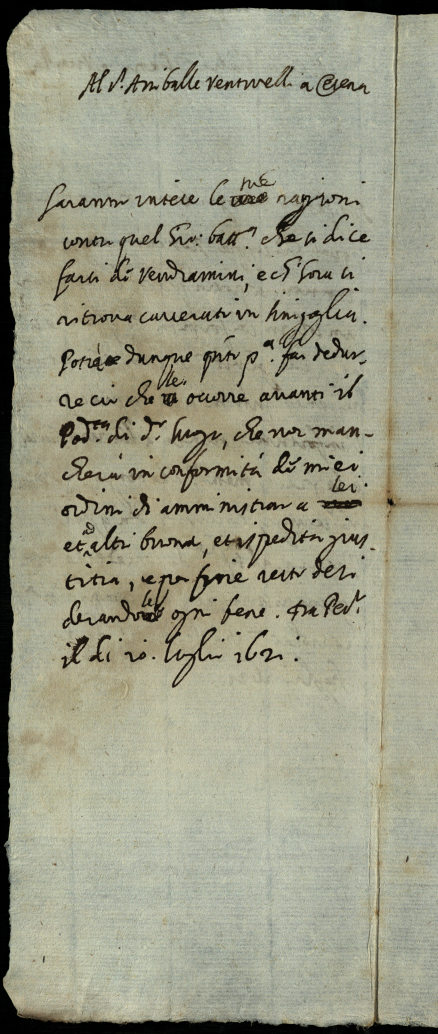 Al s.r Aniballe Venturelli a Cesena
Saranno intese le sue ragioni
contro quel Gio: Batt.a che si dice
farsi de Vendramini, e ch' hora si
ritrova carcerato in Sinigaglia.
Potrà dunque q'sto p.a far dedur-
re ciò che le occorre avanti il
Pod.tà di d.o luogo, che non man-
cherà in conformità de miei
ordini di amministrar a lei
et ad altri buona, et ispedita gius-
titia, e per fine resto desi
derandole ogni bene. Da Pes.o
il di 20. luglio 1621.